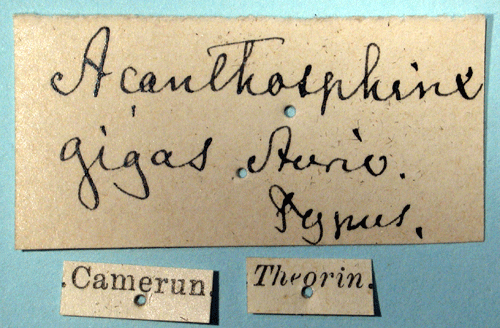 Acanthosphinx
gigas Auriv.
Typus.
.Camerun.
Theorin.